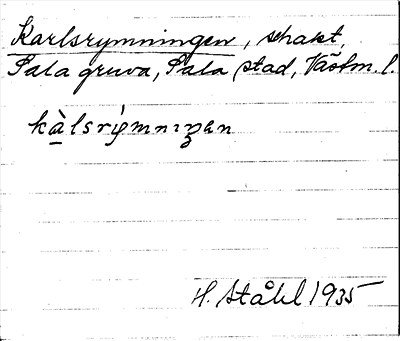 Karlsrymningen, schakt,
Sala gruva, Sala stad, Västm. l.
kàlsrýmnıŋen
H. Ståhl 1935